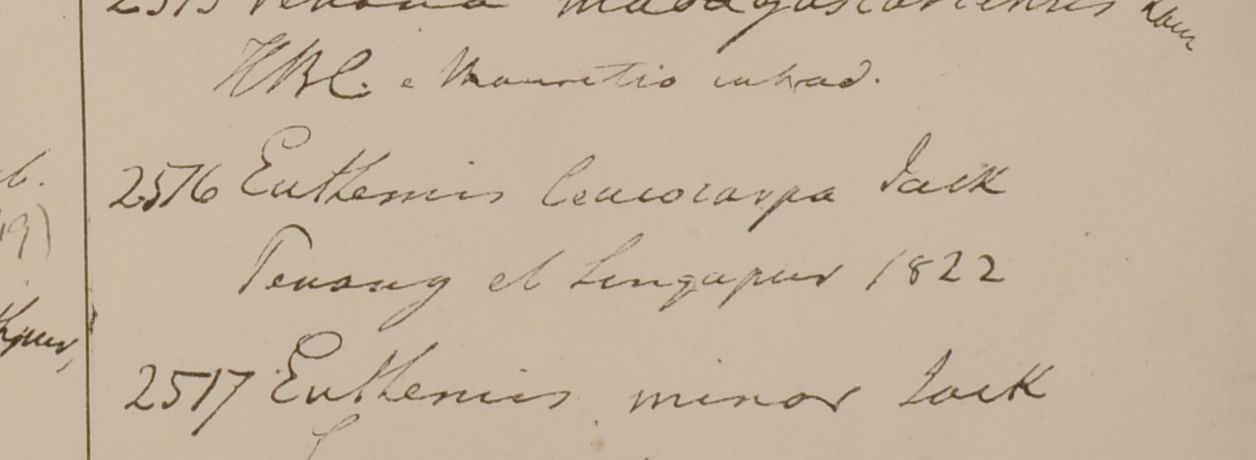 2515 madagascariensis Lam
HBC. e Mauritio introd.
2516 Euthemis leucocarpa Jack
Penang et Singapur 1822
2517 Euthemis minor Jack